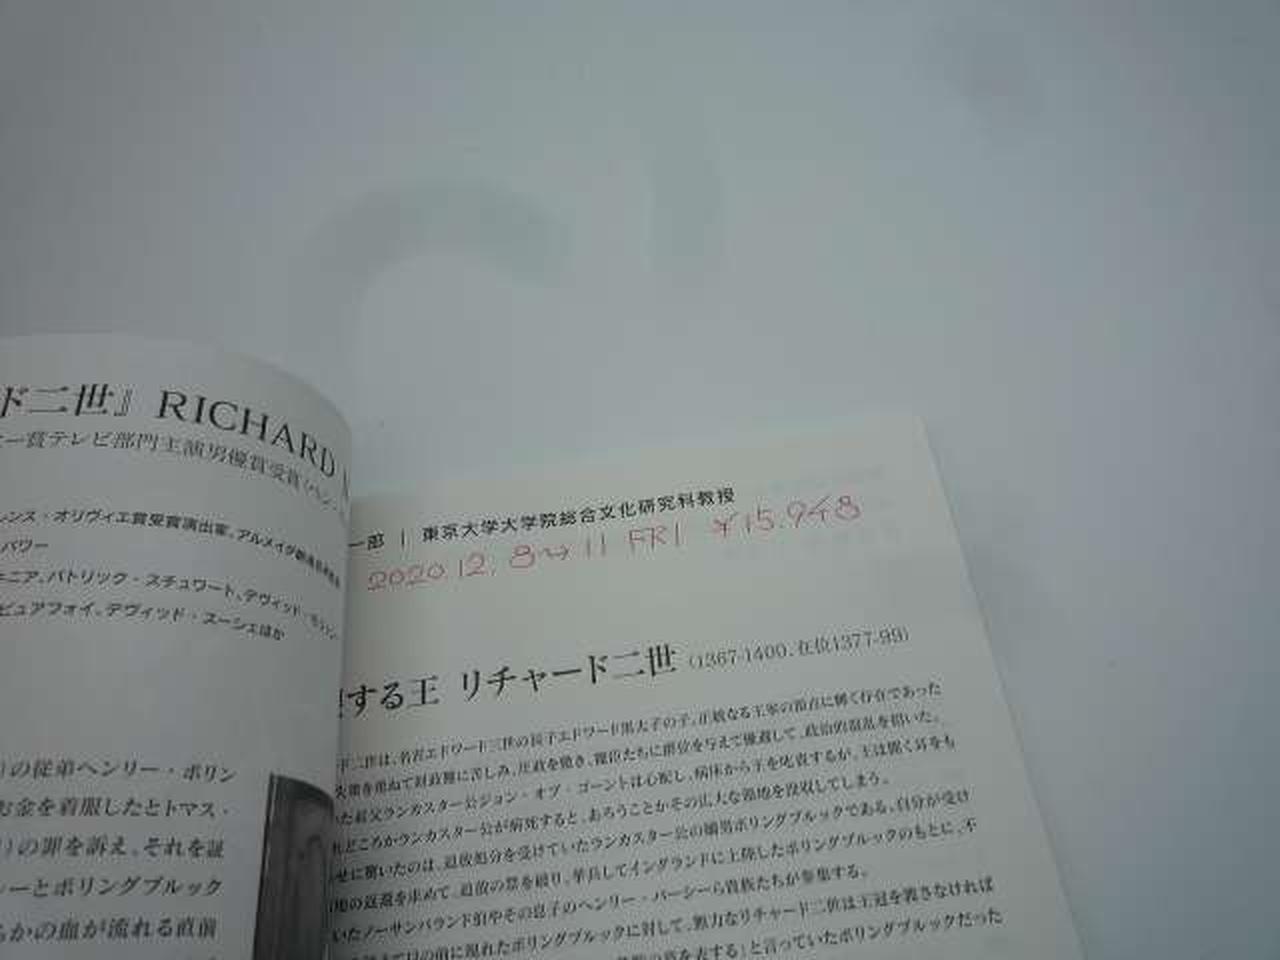 ド二世』 RICHARD
ー賞テレビ部門主演男優賞受賞
ンス・オリヴィエ賞受賞演出家、アルメイダ
パワー
ニア、パトリック・スチュワート、デヴィッド・
ピュアフォイ、デヴィッド・スーシェほか
の従弟ヘンリー・ボリン
お金を着服したとトマス・
の罪を訴え、それを証
ーとボリングブルック
らかの血が流れる直前
一郎 | 東京大学大学院総合文化研究科教授
2020.12.8〜11 FRI ¥15.948
する王 リチャード二世 (1367-1400、在位1377-99)
ド二世は、名君エドワード三世の長子エドワード黒太子の子。正統なる王家の頂点に輝く存在であった
失策を重ねて財政難に苦しみ、圧政を敷き、寵臣たちに爵位を与えて優遇して、政治的混乱を招いた。
た叔父ランカスター公ジョン・オブ・ゴーントは心配し、病床から王を叱責するが、王は聞く耳をも
れどころかランカスター公が病死すると、あろうことかその広大な領地を没収してしまう。
せに驚いたのは、追放処分を受けていたランカスター公の嫡男ボリングブルックである。自分が受け
地の返還を求めて、追放の禁を破り、挙兵してイングランドに上陸したボリングブルックのもとに、不
いたノーサンバランド伯やその息子のヘンリー・パーシーら貴族たちが参集する。
目の前に現れたボリングブルックに対して、無力なリチャード二世は王冠を渡さなければ
を表する」と言っていたボリングブルックだった